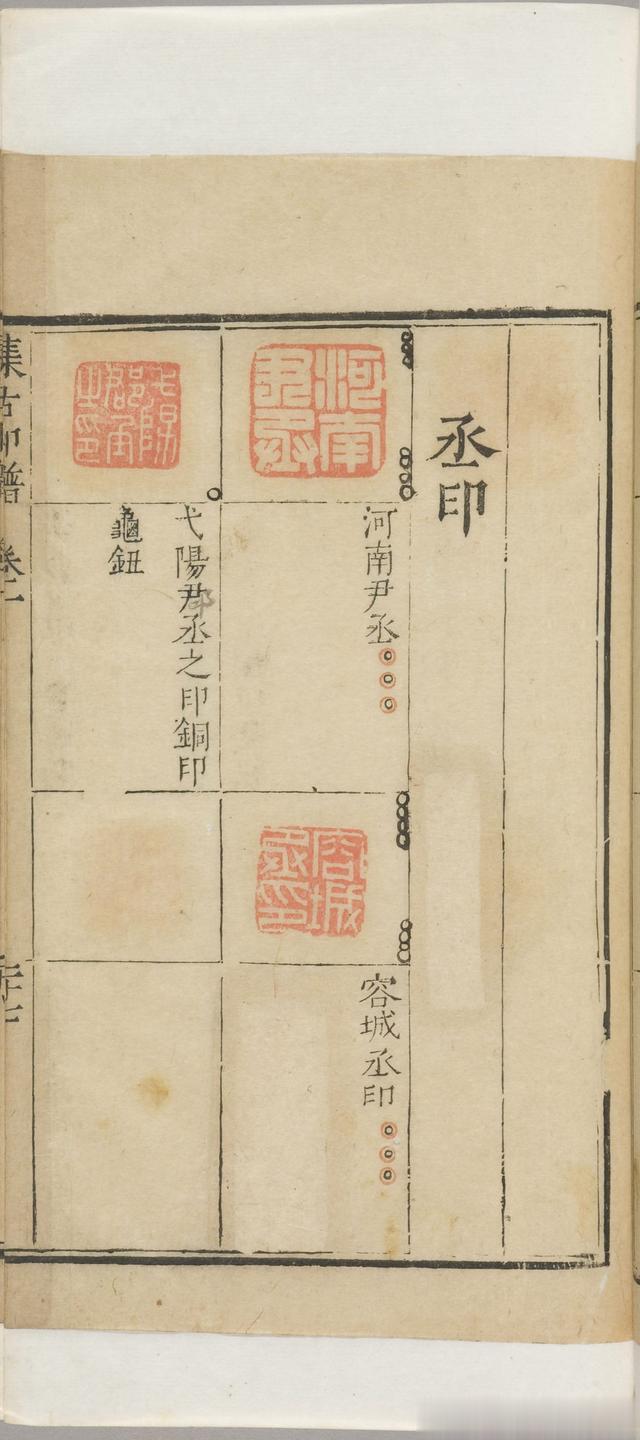 丞印
河南
尹丞
河南尹丞
容城
丞印
容城丞印
弋陽
郡
之印
弋陽尹丞之印銅印
龜鈕
集古印譜 卷二